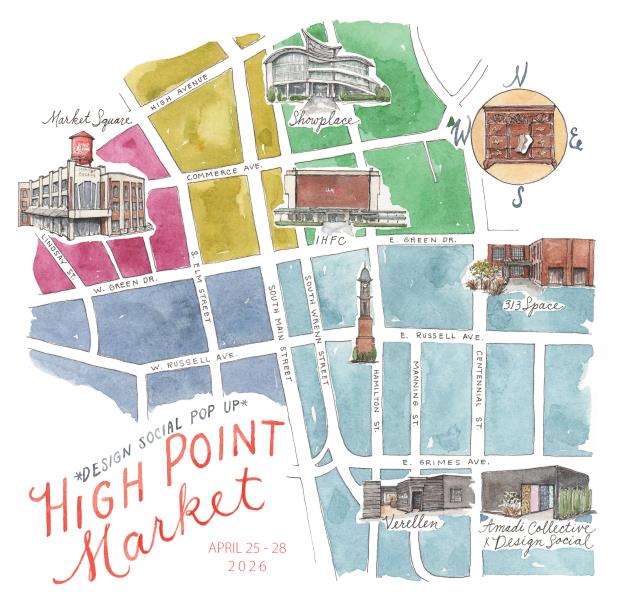 HIGH AVENUE
Market Square
Showplace
N
W
E
S
COMMERCE AVE.
IHFC
E. GREEN DR.
LINDSAY ST.
W. GREEN DR.
S. ELM STREET
SOUTH MAIN STREET
SOUTH WRENN STREET
313 Space
E. RUSSELL AVE.
W. RUSSELL AVE.
HAMILTON ST.
MANNING ST.
CENTENNIAL ST.
*DESIGN SOCIAL POP UP*
HIGH POINT
Market
E. GRIMES AVE.
Verellen
Amadi Collective
x Design Social
APRIL 25 - 28
2026